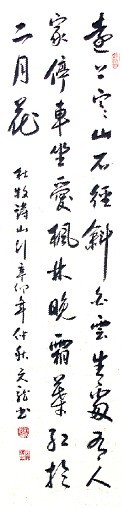 远上寒山石径斜白云生处有人
家停車坐愛楓林晚霜葉红於
二月花
杜牧詩山行辛卯年仲秋文龍书